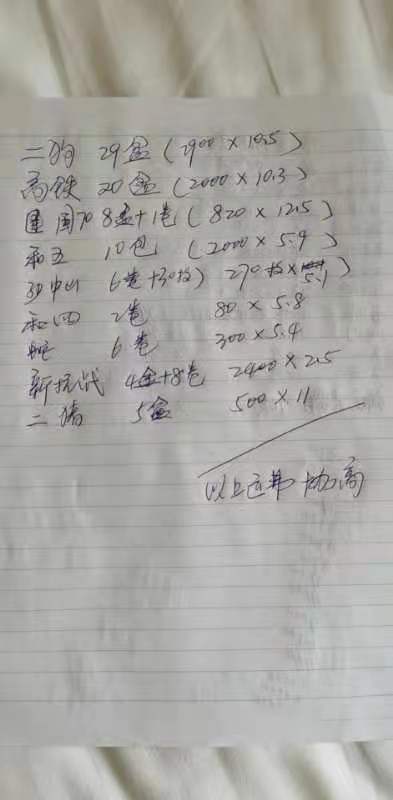 二狗 29盒 (2900×10.5)
高铁 20盒 (2000×10.3)
建国70 8盒+1卷 (820×12.5)
和五 10包 (2000×5.9)
孙中山 6卷+30枚) 270枚×5.1)
和四 2卷 80×5.8
6卷 300×5.4
新抗战 4盒+8卷 2400×2.5
二猪 5盒 500×11
以上运费 协商